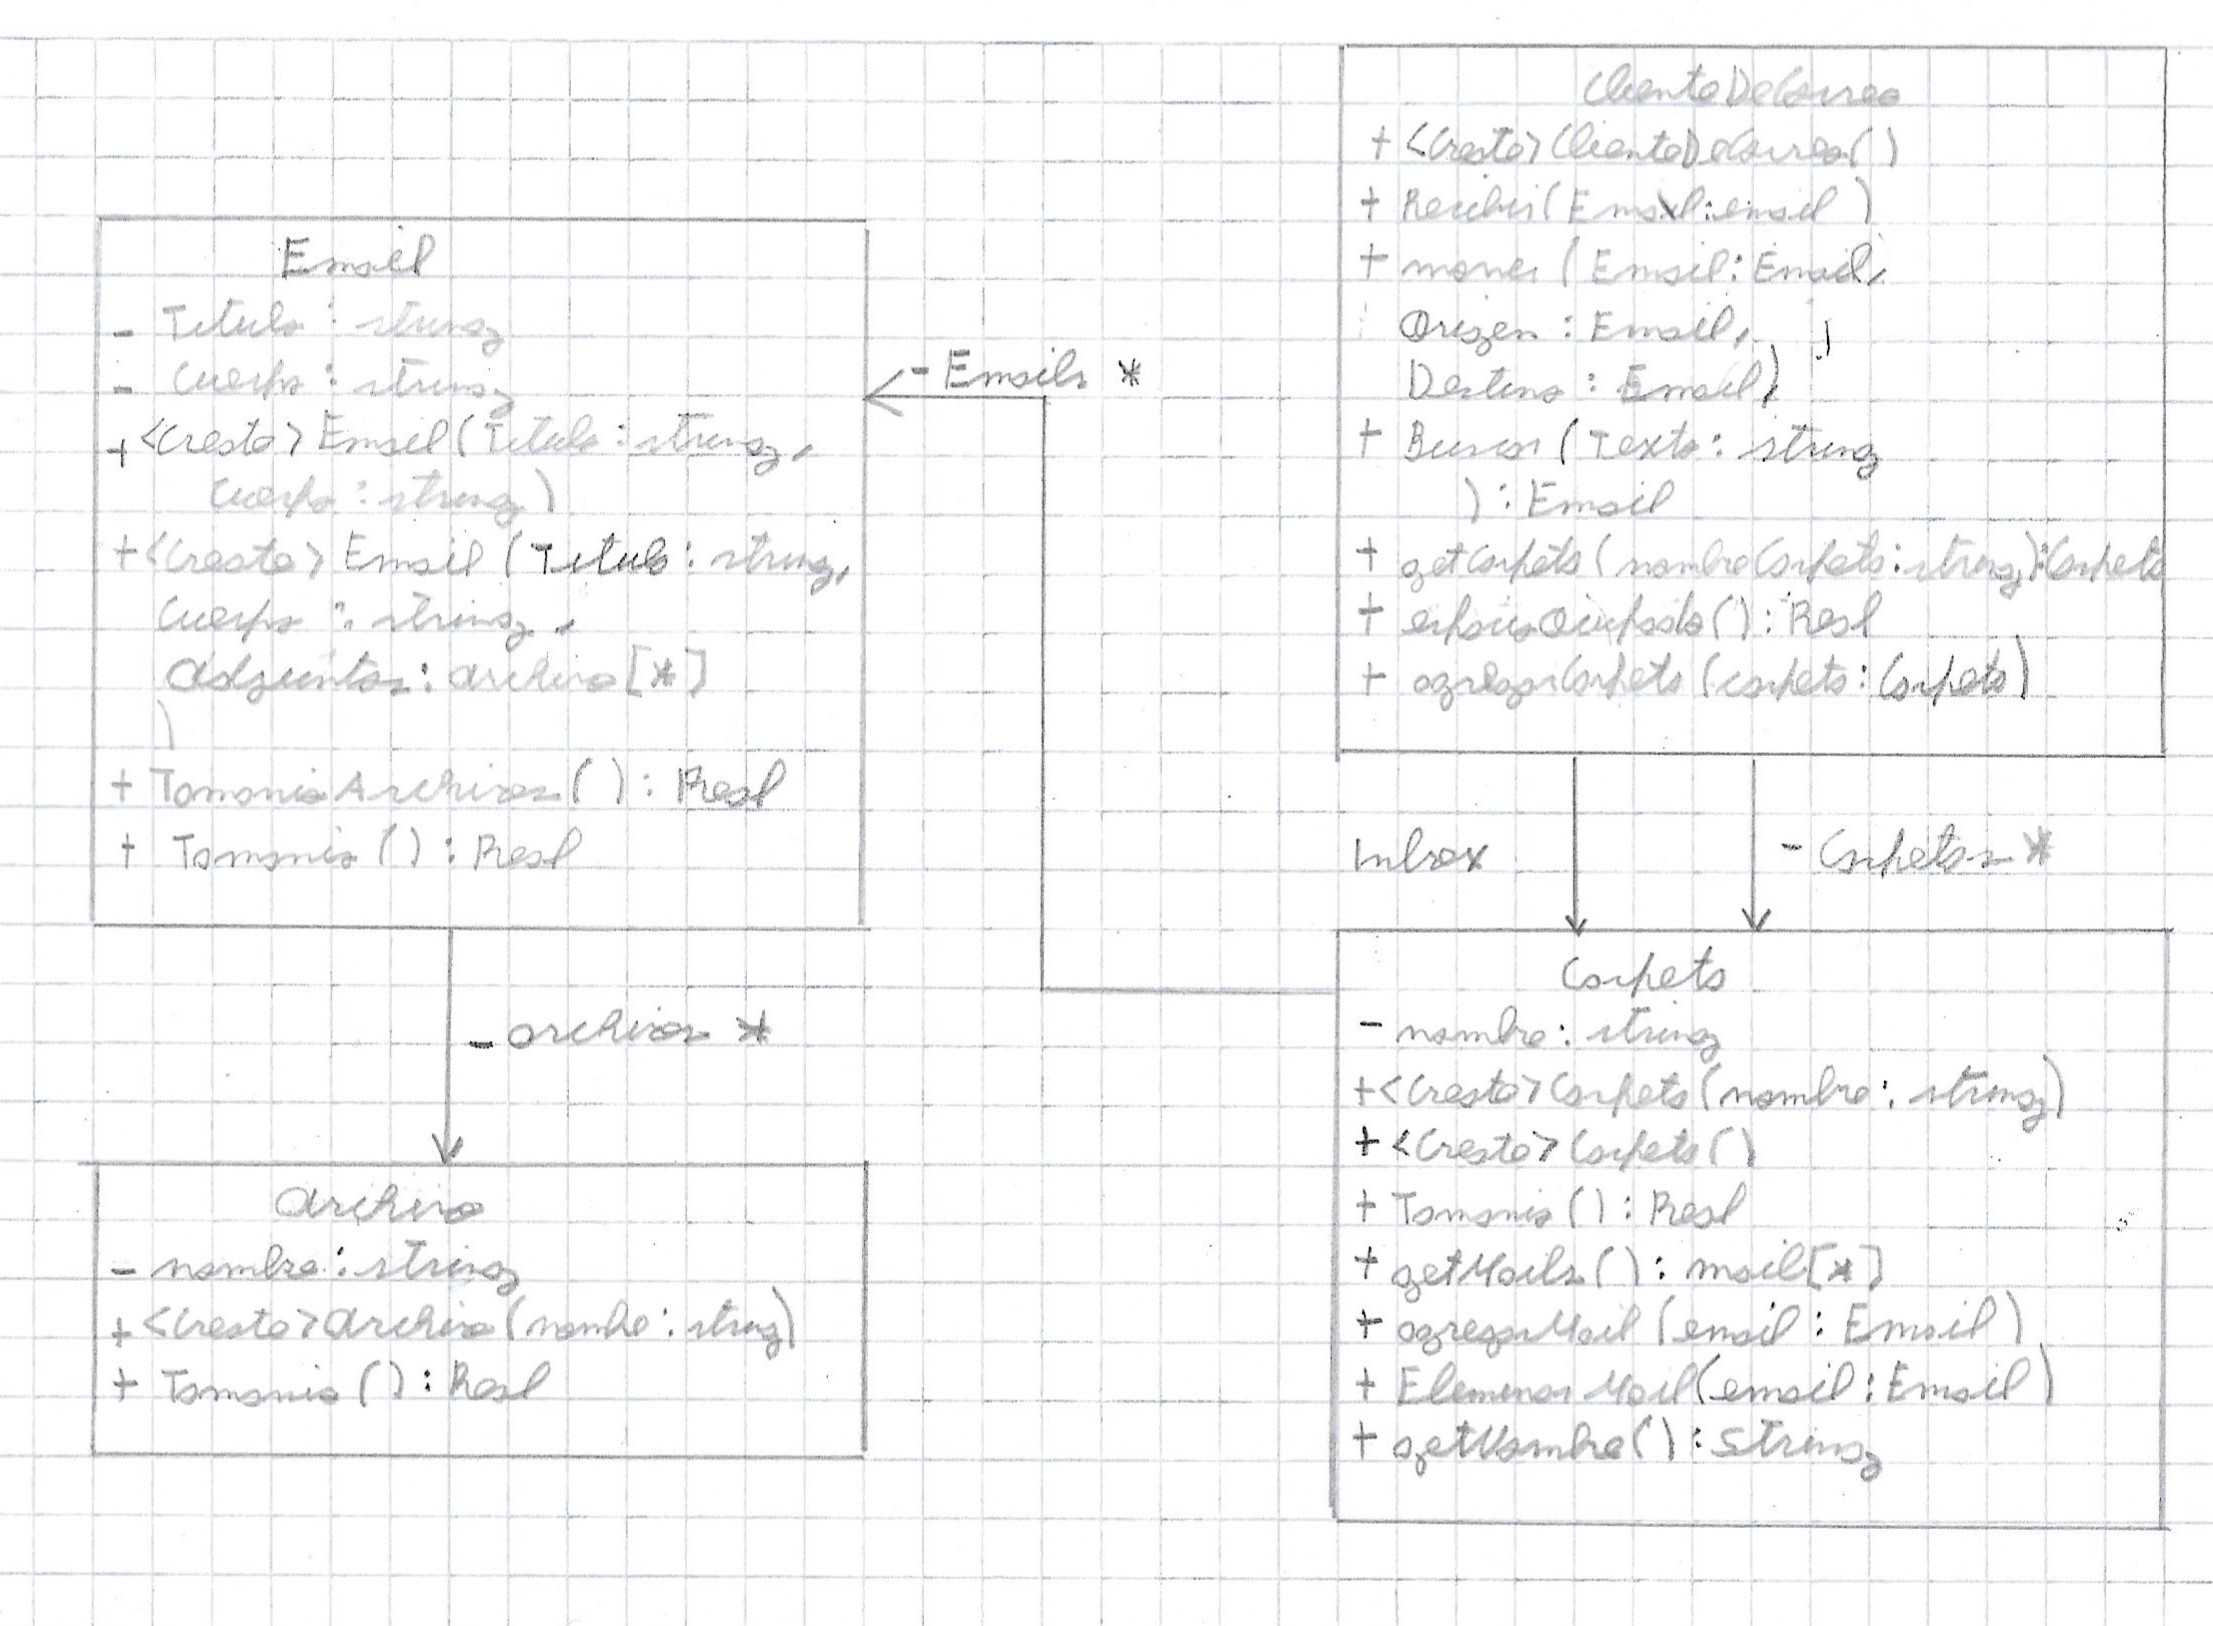 Email
- Titulo : string
- Cuerpo : string
+ <Create> Email (Titulo : string,
Cuerpo : string)
+ <Create> Email (Titulo : string,
Cuerpo : string,
Adjuntos : Archivo [*]
)
+ TamanioArchivos ( ) : Real
+ Tamanio ( ) : Real
- archivos *
Archivo
- nombre : string
+ <Create> Archivo (nombre : string)
+ Tamanio ( ) : Real
- Emails *
ClienteDeCorreo
+ <Create> ClienteDeCorreo ( )
+ Recibir (Email : email )
+ mover ( Email : Email,
Origen : Email,
Destino : Email)
+ Buscar ( Texto : string
) : Email
+ getCarpeta ( nombreCarpeta : string) : Carpeta
+ espacioOcupado ( ) : Real
+ agregarCarpeta (carpeta : Carpeta)
Inbox
- Carpetas *
Carpeta
- nombre : string
+ <Create> Carpeta (nombre : string)
+ <Create> Carpeta ( )
+ Tamanio ( ) : Real
+ getMails ( ) : mail [*]
+ agregarMail (email : Email)
+ EliminarMail (email : Email)
+ getNombre ( ) : String